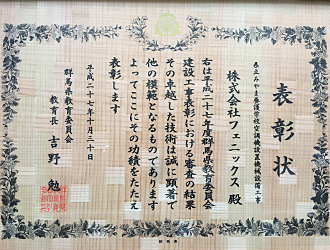 表彰状
県立みやま養護学校空調機設置機械設備工事
株式会社フェニックス 殿
右は平成二十七年度群馬県教育委員会
建設工事表彰における審査の結果
その卓越した技術は誠に顕著で
他の模範となるものであります
よってここにその功績をたたえ
表彰します
平成二十七年十月三十日
群馬県教育委員会
教育長 吉野 勉